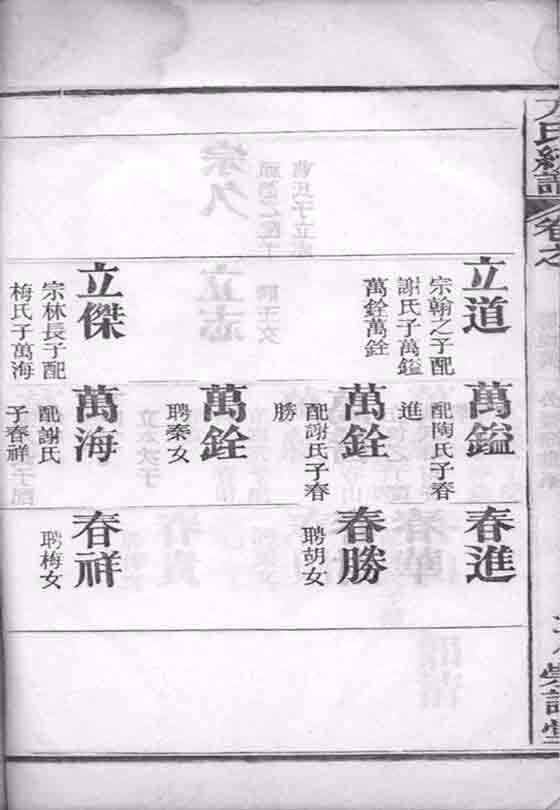 氏
卷之
立道
宗翰之子配
謝氏子萬鎰
萬銓萬銓
立傑
宗林長子配
梅氏子萬海
萬鎰
配陶氏子春
進
萬銓
配謝氏子春
勝
萬銓
聘秦女
萬海
配謝氏
子春祥
春進
春勝
聘胡女
春祥
聘梅女